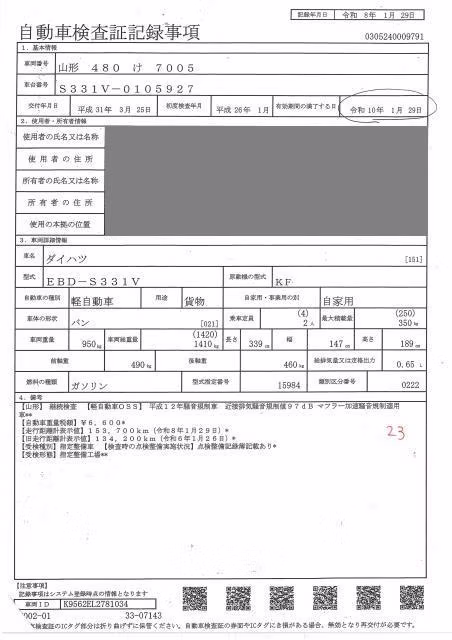 記録年月日 令和 8年 1月 29日
自動車検査証記録事項
0305240009791
1. 基本情報
車両番号 山形 480 け 7005
車台番号 S331V-0105927
交付年月日 平成31年 3月 25日 初度検査年月 平成26年 1月 有効期間の満了する日 令和10年 1月 29日
2. 使用者・所有者情報
使用者の氏名又は名称
使用者の住所
所有者の氏名又は名称
所有者の住所
使用の本拠の位置
3. 車両詳細情報
車名 ダイハツ [151]
型式 EBD-S331V 原動機の型式 KF
自動車の種別 軽自動車 用途 貨物 自家用・事業用の別 自家用
車体の形状 バン [021] 乗車定員 (4) 2人 最大積載量 (250) 350kg
車両重量 950kg 車両総重量 (1420) 1410kg 長さ 339cm 幅 147cm 高さ 189cm
前軸重 490kg 後軸重 460kg 総排気量又は定格出力 0.65 L
燃料の種類 ガソリン 型式指定番号 15984 類別区分番号 0222
4. 備考
【山形】 継続検査 【軽自動車OSS】 平成12年騒音規制車 近接排気騒音規制値97dB マフラー加速騒音規制適用
車**
【自動車重量税額】¥6,600*
【走行距離計表示値】153,700km（令和8年1月29日）*
【旧走行距離計表示値】134,200km（令和6年1月26日）*
【受検種別】指定整備車 【検査時の点検整備実施状況】点検整備記録簿記載あり*
【受検形態】指定整備工場**
23
【注意事項】
記録事項はシステム登録時点の情報となります
車両ID K9562EL2781034
002-01 33-07143
検査証のICタグ部分は折り曲げずに保管ください。自動車検査証の券面やICタグにき損がある場合、無効となり再交付が必要です。